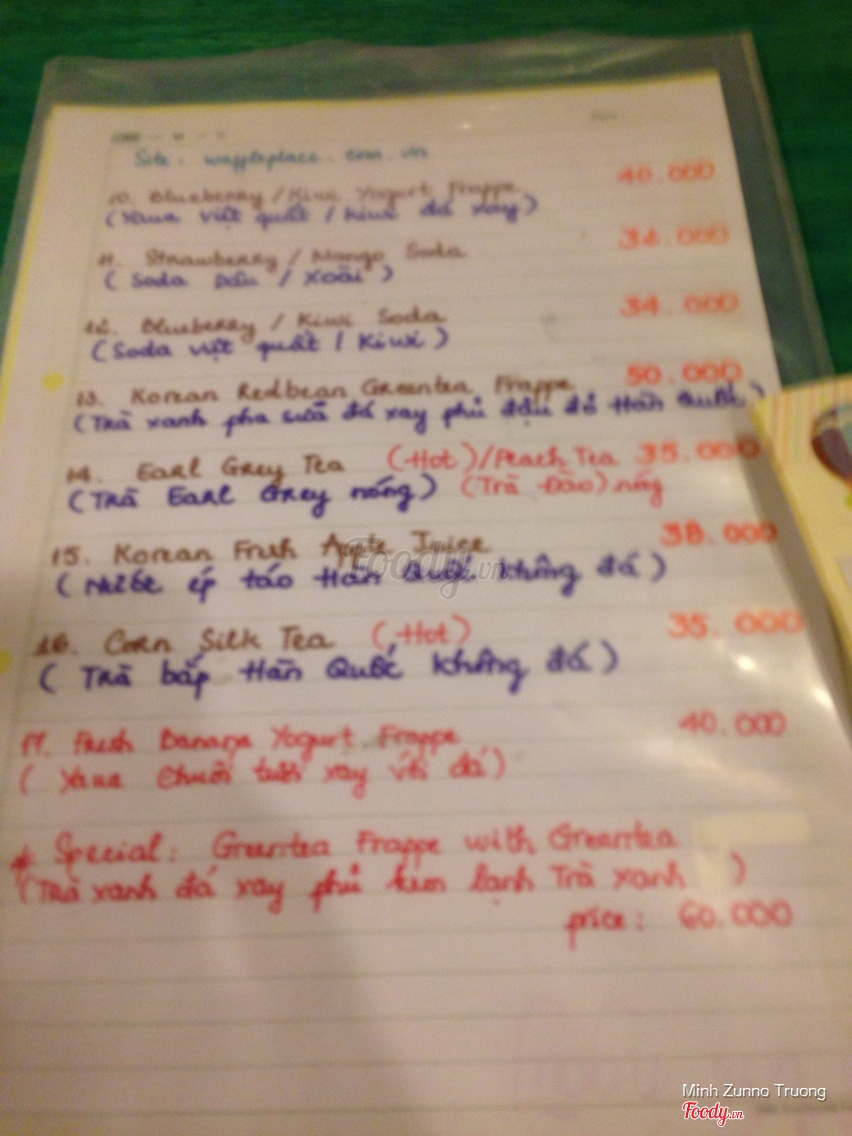 Site: waffleplace.com.vn
10. Blueberry / Kiwi Yogurt Frappe 40.000
(Yaua việt quất / kiwi đá xay)
11. Strawberry / Mango Soda 32.000
(Soda Dâu / Xoài)
12. Blueberry / Kiwi Soda 34.000
(Soda việt quất / Kiwi)
13. Korean Redbean Greentea Frappe 50.000
(Trà xanh pha sữa đá xay phủ đậu đỏ Hàn Quốc)
14. Earl Grey Tea (Hot)/Peach Tea 35.000
(Trà Earl Grey nóng) (Trà Đào) nóng
15. Korean Fresh Apple Juice 38.000
(Nước ép táo Hàn Quốc không đá)
16. Corn Silk Tea (Hot) 35.000
(Trà bắp Hàn Quốc không đá)
17. Fresh Banana Yogurt Frappe 40.000
(Yaua chuối tươi xay với đá)
* Special: Greentea Frappe with Greentea
(Trà xanh đá xay phủ kem lạnh Trà xanh)
price: 60.000
Foody.vn
Minh Zunno Truong
Foody.vn